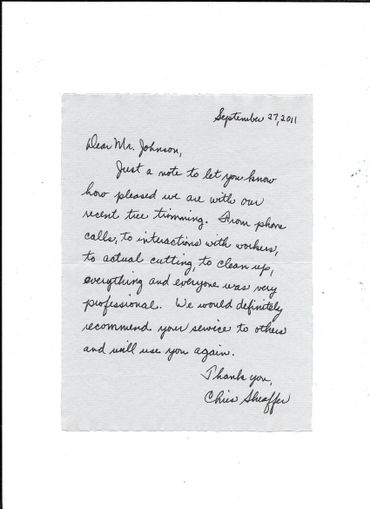 September 27, 2011
Dear Mr. Johnson,
Just a note to let you know
how pleased we are with our
recent tree trimming. From phone
calls, to interactions with workers,
to actual cutting, to clean up,
everything and everyone was very
professional. We would definitely
recommend your service to others
and will use you again.
Thank you,
Chris Sheaffer